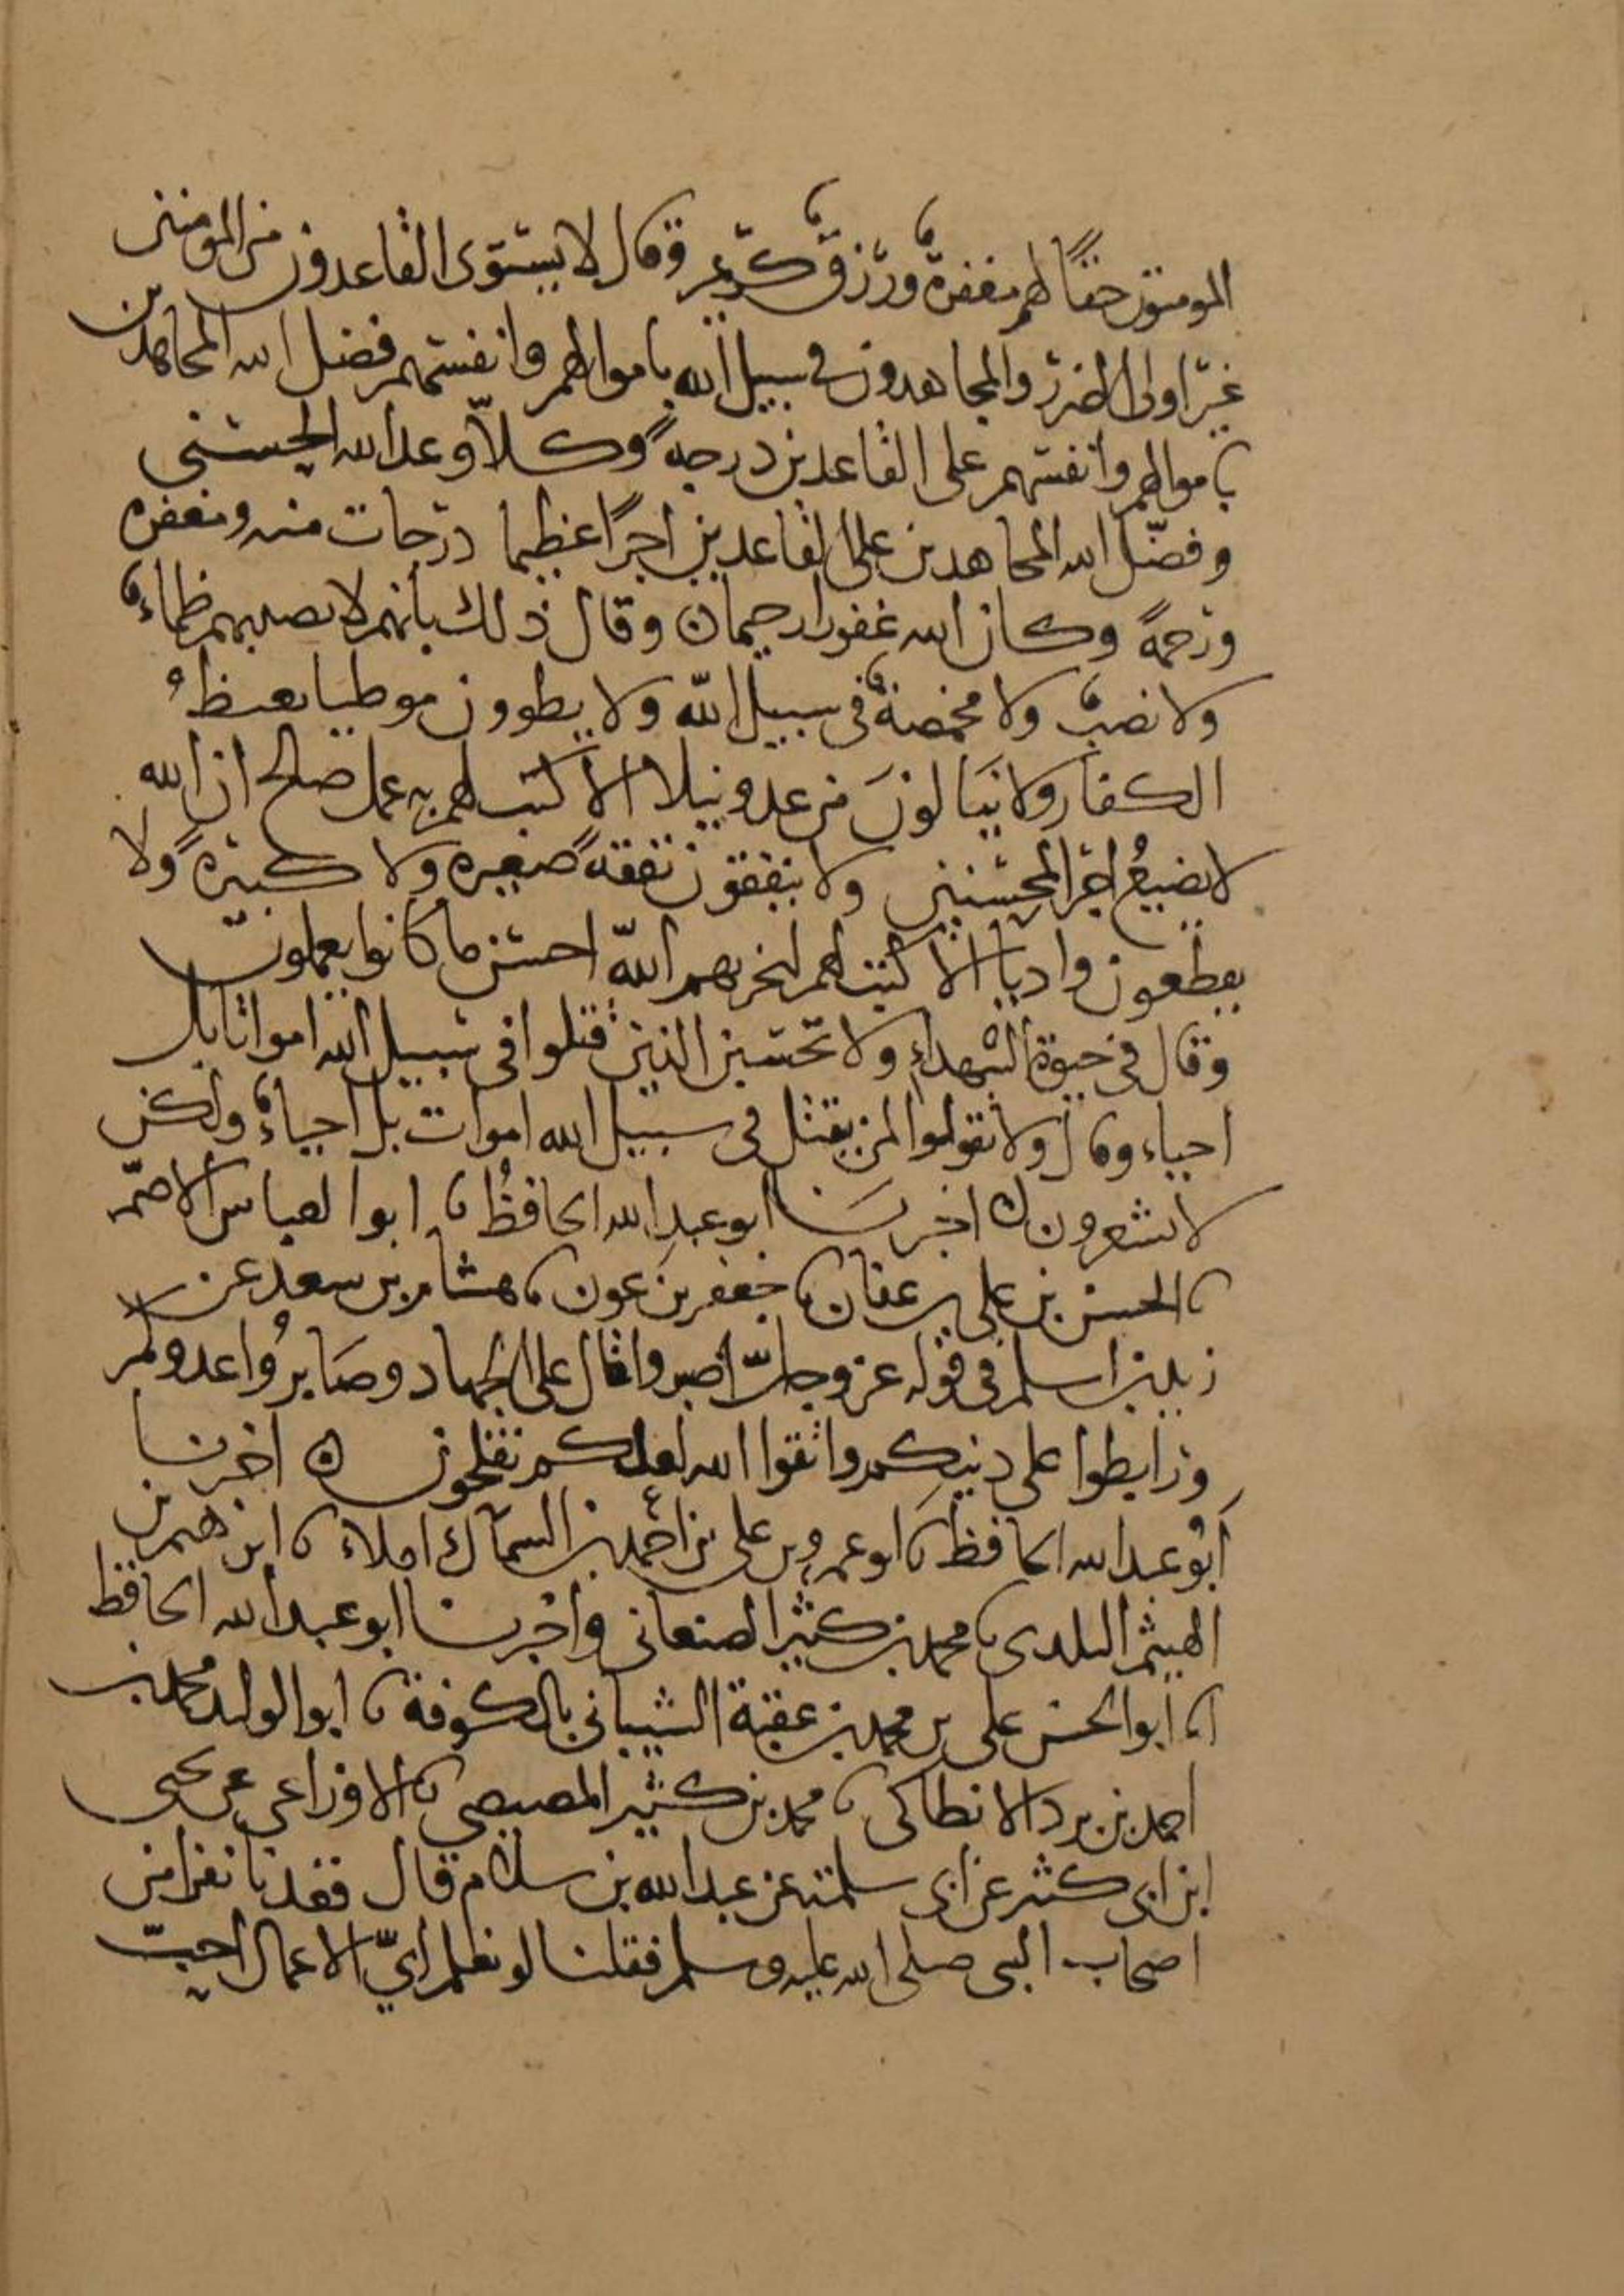 المومنون حقاً لهم مغفرةٌ ورزقٌ كريم وقال لا يستوى القاعدون من المومنين
غير اولى الضرر والمجاهدون فى سبيل الله باموالهم وانفسهم فضل الله المجاهدين
باموالهم وانفسهم على القاعدين درجةً وكلاًّ وعد الله الحسنى
وفضّل الله المجاهدين على القاعدين اجرًا عظيما درجات منه ومغفرة
ورحمةً وكان الله غفورا رحيما ن وقال ذلك بانهم لا يصيبهم ظماءٌ
ولا نصبٌ ولا مخمصةٌ فى سبيل الله ولا يطوون موطيا يغيظُ
الكفار ولا ينالونَ من عدو نيلا الا كتب لهم به عمل صالح ان الله
لا يضيعُ اجر المحسنين ولا ينفقون نفقةً صغيره ولا كبيرةً ولا
يقطعون واديا الا كتب لهم ليجزيهم اللّه احسن ما كانوا يعملون
وقال فى حيوة الشهداء ولا تحسبن الذين قتلوا فى سبيل الله امواتا بل
احياء وقال ولا تقولوا لمن يقتل فى سبيل الله اموات بل احياءٌ ولكن
لا تشعرون ن اخبرنا ابو عبد الله الحافظُ نا ابو العباس الاصمّ
نا الحسن بن على بن عفان نا جعفر بن عون نا هشام بن سعد عن
زيد بن اسلم فى قوله عز وجلّ اصبروا قال على الجهاد وصَابرُوا عدوكم
ورابطوا على دينكم واتقوا الله لعلكم تفلحون ن اخبرنا
أبُو عبد الله الحافظ نا ابو عمرو بن على بن احمد بن السماك املاء نا ابرهيم بن
الهيثم البلدى نا محمد بن كثير الصنعانى واخبرنا ابو عبد الله الحافظ
انا ابو الحسن على بن محمد بن عقبة الشيبانى بالكوفة نا ابو الوليد محمد بن
احمد بن برد الانطاكى نا محمد بن كثير المصيصى نا الاوزاعى عن يحيى
ابن ابى كثير عن ابى سلمة عن عبد الله بن سلام قال قعدنا نفرا من
اصحاب النبى صلى الله عليه وسلم فقلنا لو نعلم ايّ الاعمال احبّ